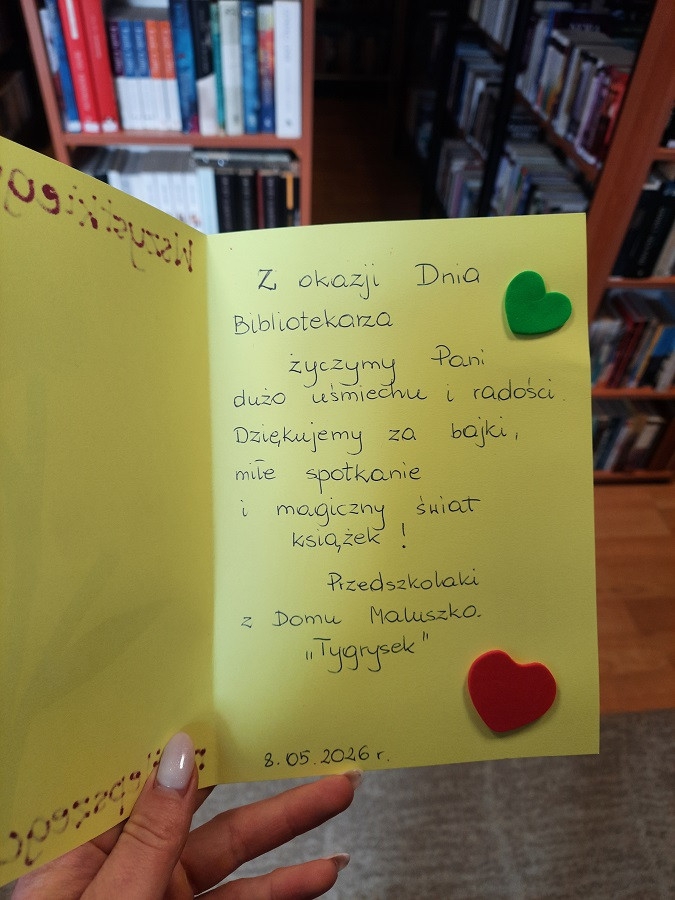 Z okazji Dnia
Bibliotekarza
życzymy Pani
dużo uśmiechu i radości.
Dziękujemy za bajki,
miłe spotkanie
i magiczny świat
książek !
Przedszkolaki
z Domu Maluszka.
„Tygrysek”
8.05.2026 r.